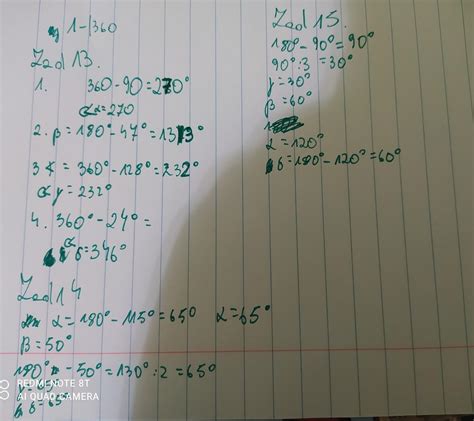 1-360
Zad 13.
1. 360-90=270°
α=270
2. β=180°-47°=133°
3 = 360°-128°=232°
γ=232°
4. 360°-24°=
δ=346°
Zad 14
α=180°-115°=65° α=65°
β=50°
180°-50°=130°:2=65°
δ=65°
Zad 15.
180°-90°=90°
90°:3=30°
γ=30°
β=60°
α=120°
δ=180°-120°=60°
REDMI NOTE 8T
AI QUAD CAMERA